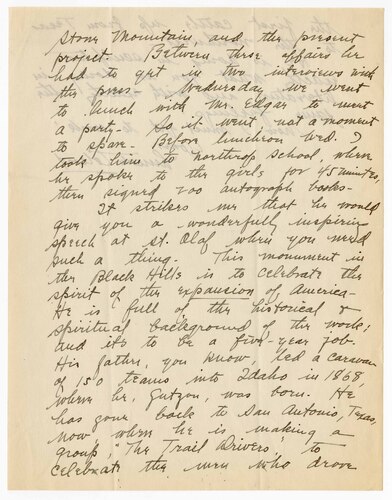 Stone Mountain and the present
project. Between these affairs he
had to get in two interviews with
the press. Wednesday we went
to lunch with Mr. Edgar to meet
a party. So it went not a moment
to spare. Before luncheon Wed. I
took him to Northrop School, where
he spoke to the girls for 45 minutes,
then signed 200 autograph books.
It strikes me that he would
give you a wonderfully inspiring
speech at St. Olaf when you need
such a thing. This monument in
the Black Hills is to celebrate the
spirit of the expansion of America.
He is full of the historical &
spiritual background of the work;
and it's to be a five-year job.
His father, you know led a caravan
of 150 teams into Idaho in 1868,
where he, Gutzon, was born. He
has gone back to San Antonio, Texas,
now, where he is making a
group, "The Trail Drivers," to
celebrate the men who drove